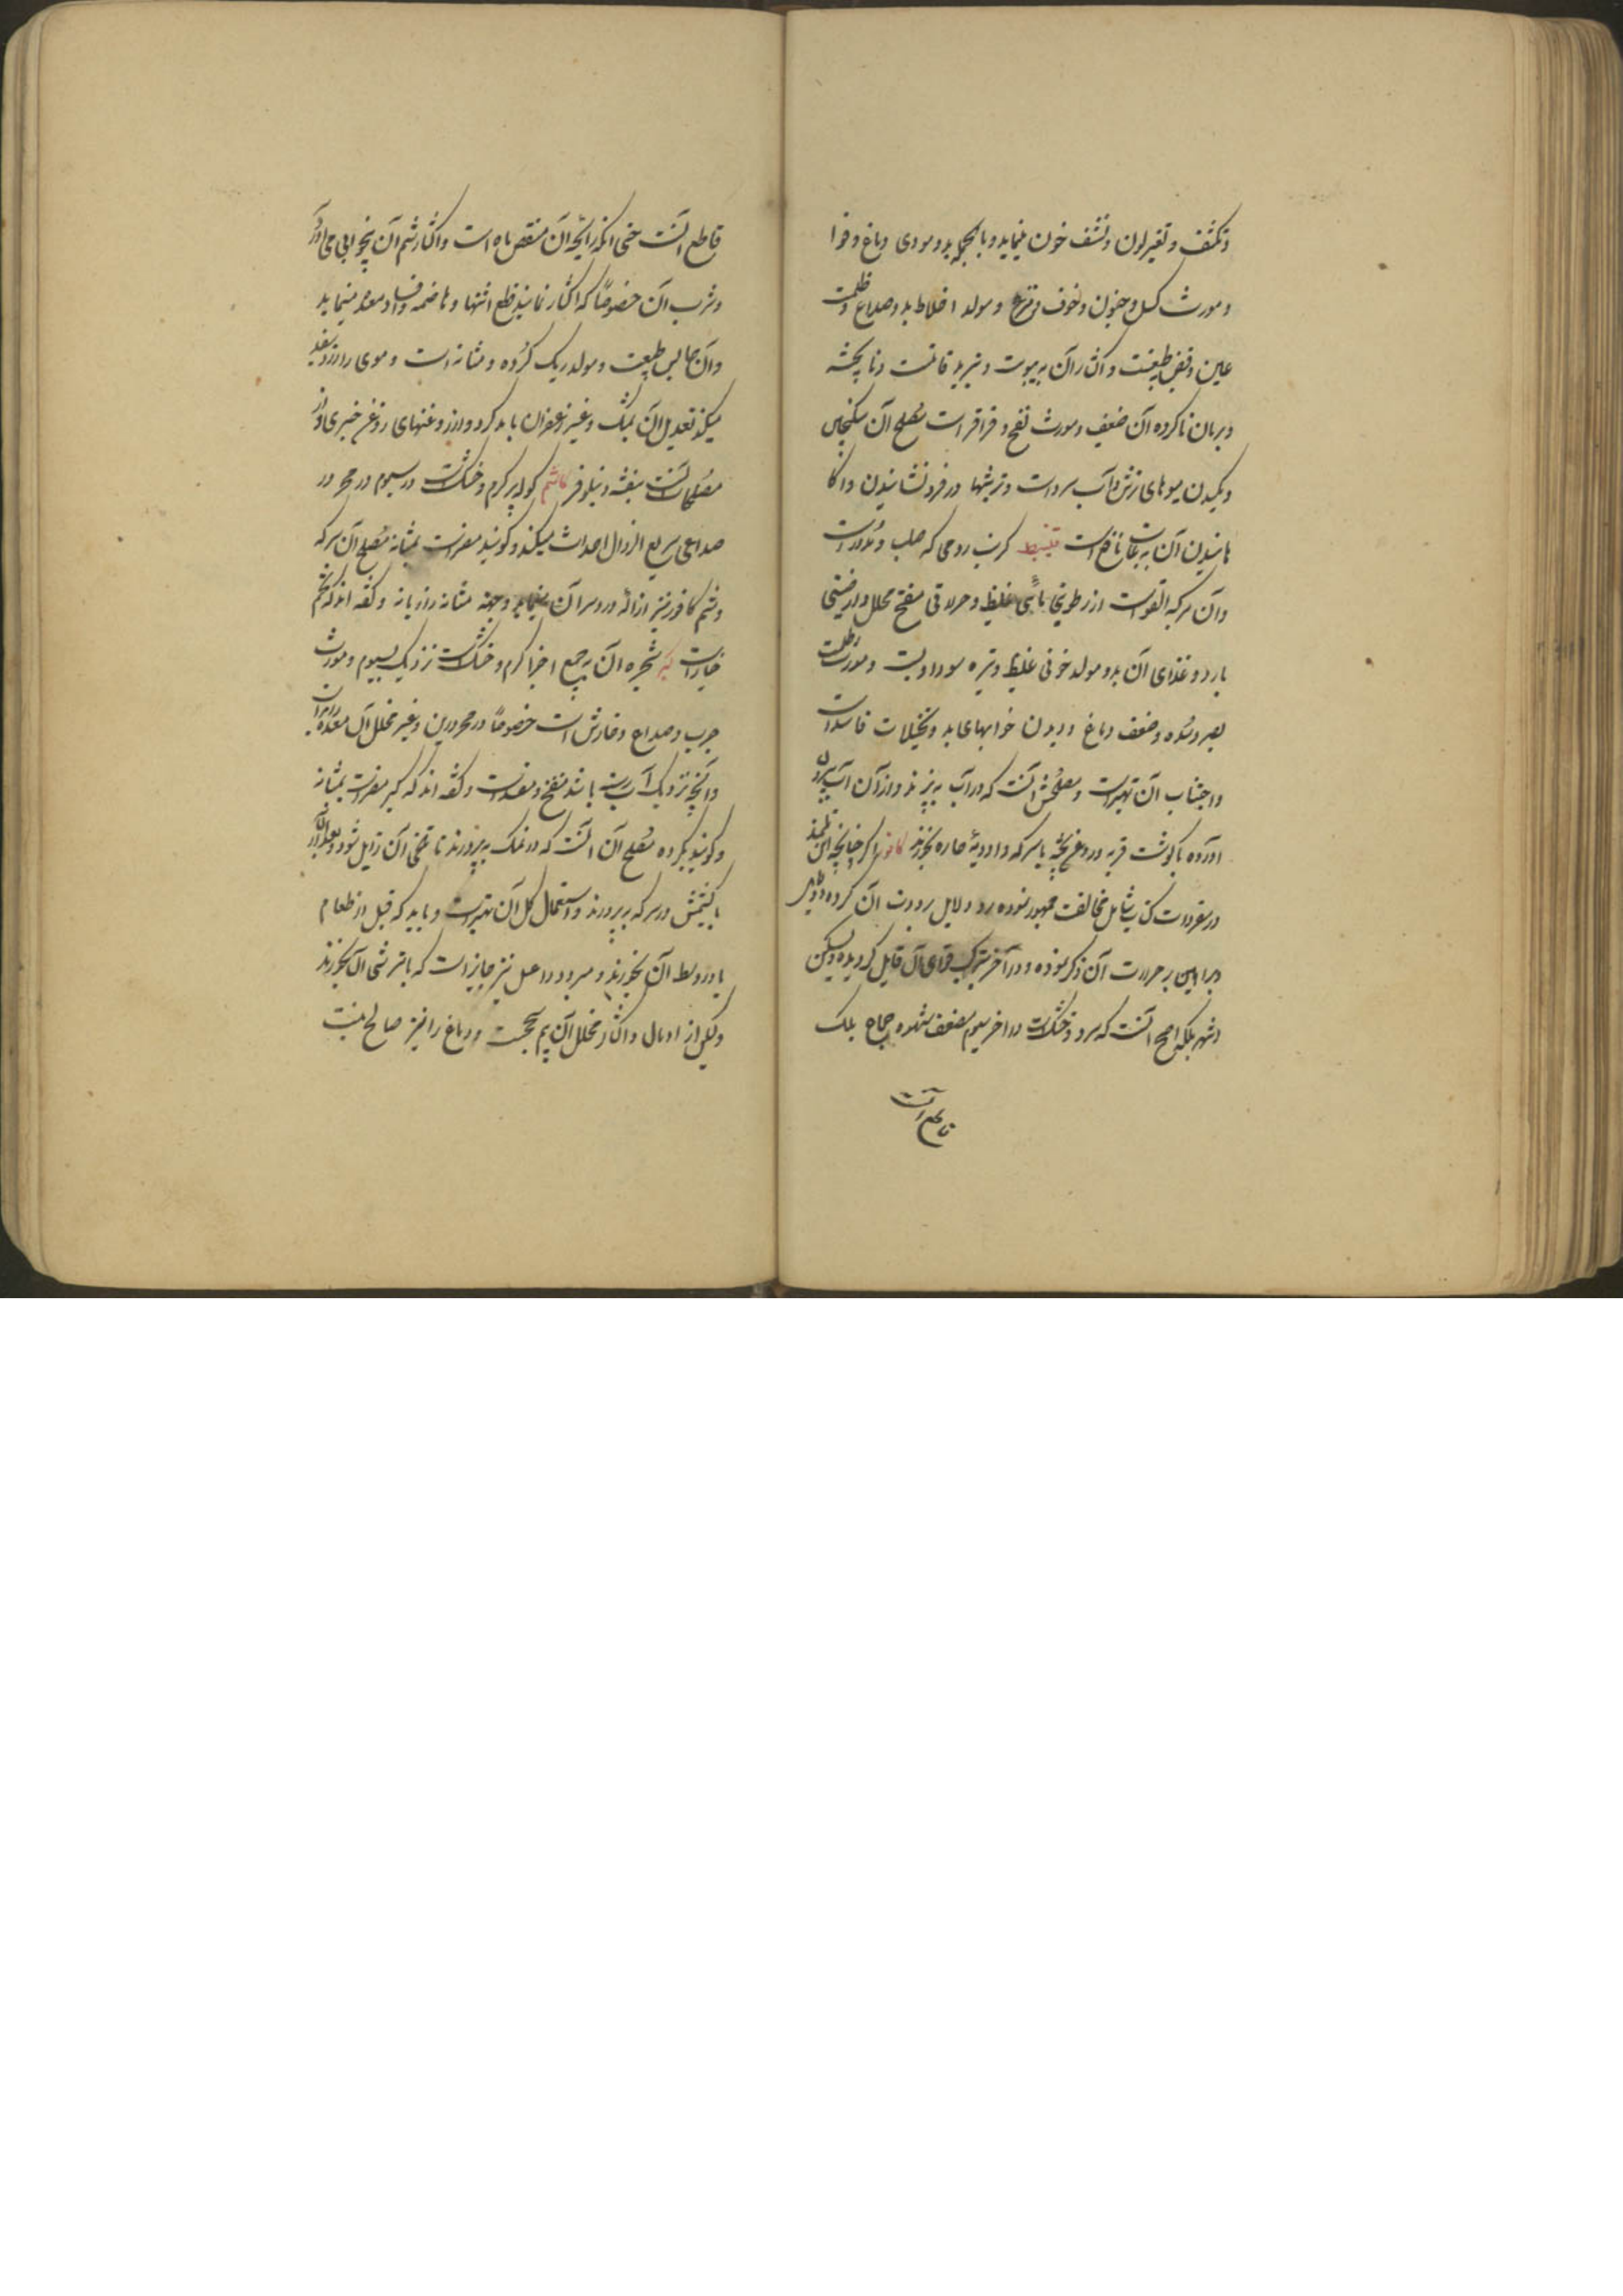 و تکثف و تغیر لون و نشف خون مینماید و بالجمله بد و موذی دماغ و
و مورث کسل و جنون و خوف و فزع و مولد اخلاط بد و صداع و ظلمت
عین و قبض طبیعت و اکثار آن به یبوست و تبرید قاتلست و ناپخته
و بریان ناکرده آن ضعیف و مورث نفخ و قراقر است مصلح آن سکنجبین
و مکیدن میوهای ترش و آب سرد است و ترشیها و فرو نشانیدن و
آن به نافع است قنبیط کرنب رومی که صلب و مدور است
و آن مرکب القوی است از رطوبتی مائی غلیظ و حرافتی مفتح محلل و ارضیتی
بارد و غذای آن بد و مولد خونی غلیظ و تیره سوداویست و مورث ظلمت
بصر و سده و ضعف دماغ و دیدن خوابهای بد و تخیلات فاسد است
و اجتناب آن بهتر است و مصلحش آنست که در آب بپزند و از آن آب بیرون
آورده با گوشت فربه و روغن پخته یا سرکه و ادویهٔ حاره بخورند کافور اگر چنانچه ابن تلمیذ
در مفردات کتابش مخالفت جمهور نموده رد دلایل برودت آن کرده و
براهین بر حرارت آن ذکر نموده و در آخر بترکب قوای آن قایل گردیده و لیکن
اشهر بلکه اصح آنست که سرد و خشکست در آخر سیوم مضعف شهوه جماع بلک
قاطع آنست
قاطع آنست حتی آنکه رایحه آن منقص باه است و اکثار شم آن بیخوابی می آورد
و شرب آن خصوصاً که اکثار نمایند قطع اشتها و هاضمه و افساد معده مینماید
و آن حابس طبیعت و مولد ریک کرده و مثانه است و موی را زود سفید
میکند تعدیل آن بمشک و عنبر و زعفران باید کرد و از روغنهای روغن خیری و از
مصلحات آنست بنفشه و نیلوفر کاشم کوله پر گرم و خشکست در سیوم در محرور
صداعی سریع الزوال احداث میکند و گویند مضر است بمثانه مصلح آن سرکه
و شم کافور نیز ازاله درد سر آن مینماید و جهة مثانه رازیانه و گفته اند که تخم
خیار است کبر شجره آن به جمیع اجزا گرم و خشکست نزدیک بسیوم و مورث
جرب و صداع و خارش است خصوصاً در محرورین و غیر مخلل آن معده را مضر است
و آنچه نزدیک آب رسته باشد منفخ و مفسد است و گفته اند که کبر مضر است بمثانه
و گویند بگرده مصلح آن آنست که در نمک بپرورند تا تلخی آن زایل شود و بعد از آن
با کشمش در سرکه بپرورند و استعمال کل آن بهتر است و باید که قبل از طعام
یا در وسط آن بخورند و مبرود را عسل نیز جایز است که با ترشی آن بخورند
و لیکن از ادمان و اکثار مخلل آن بپرهیزند و دماغ را نیز صالح نیست